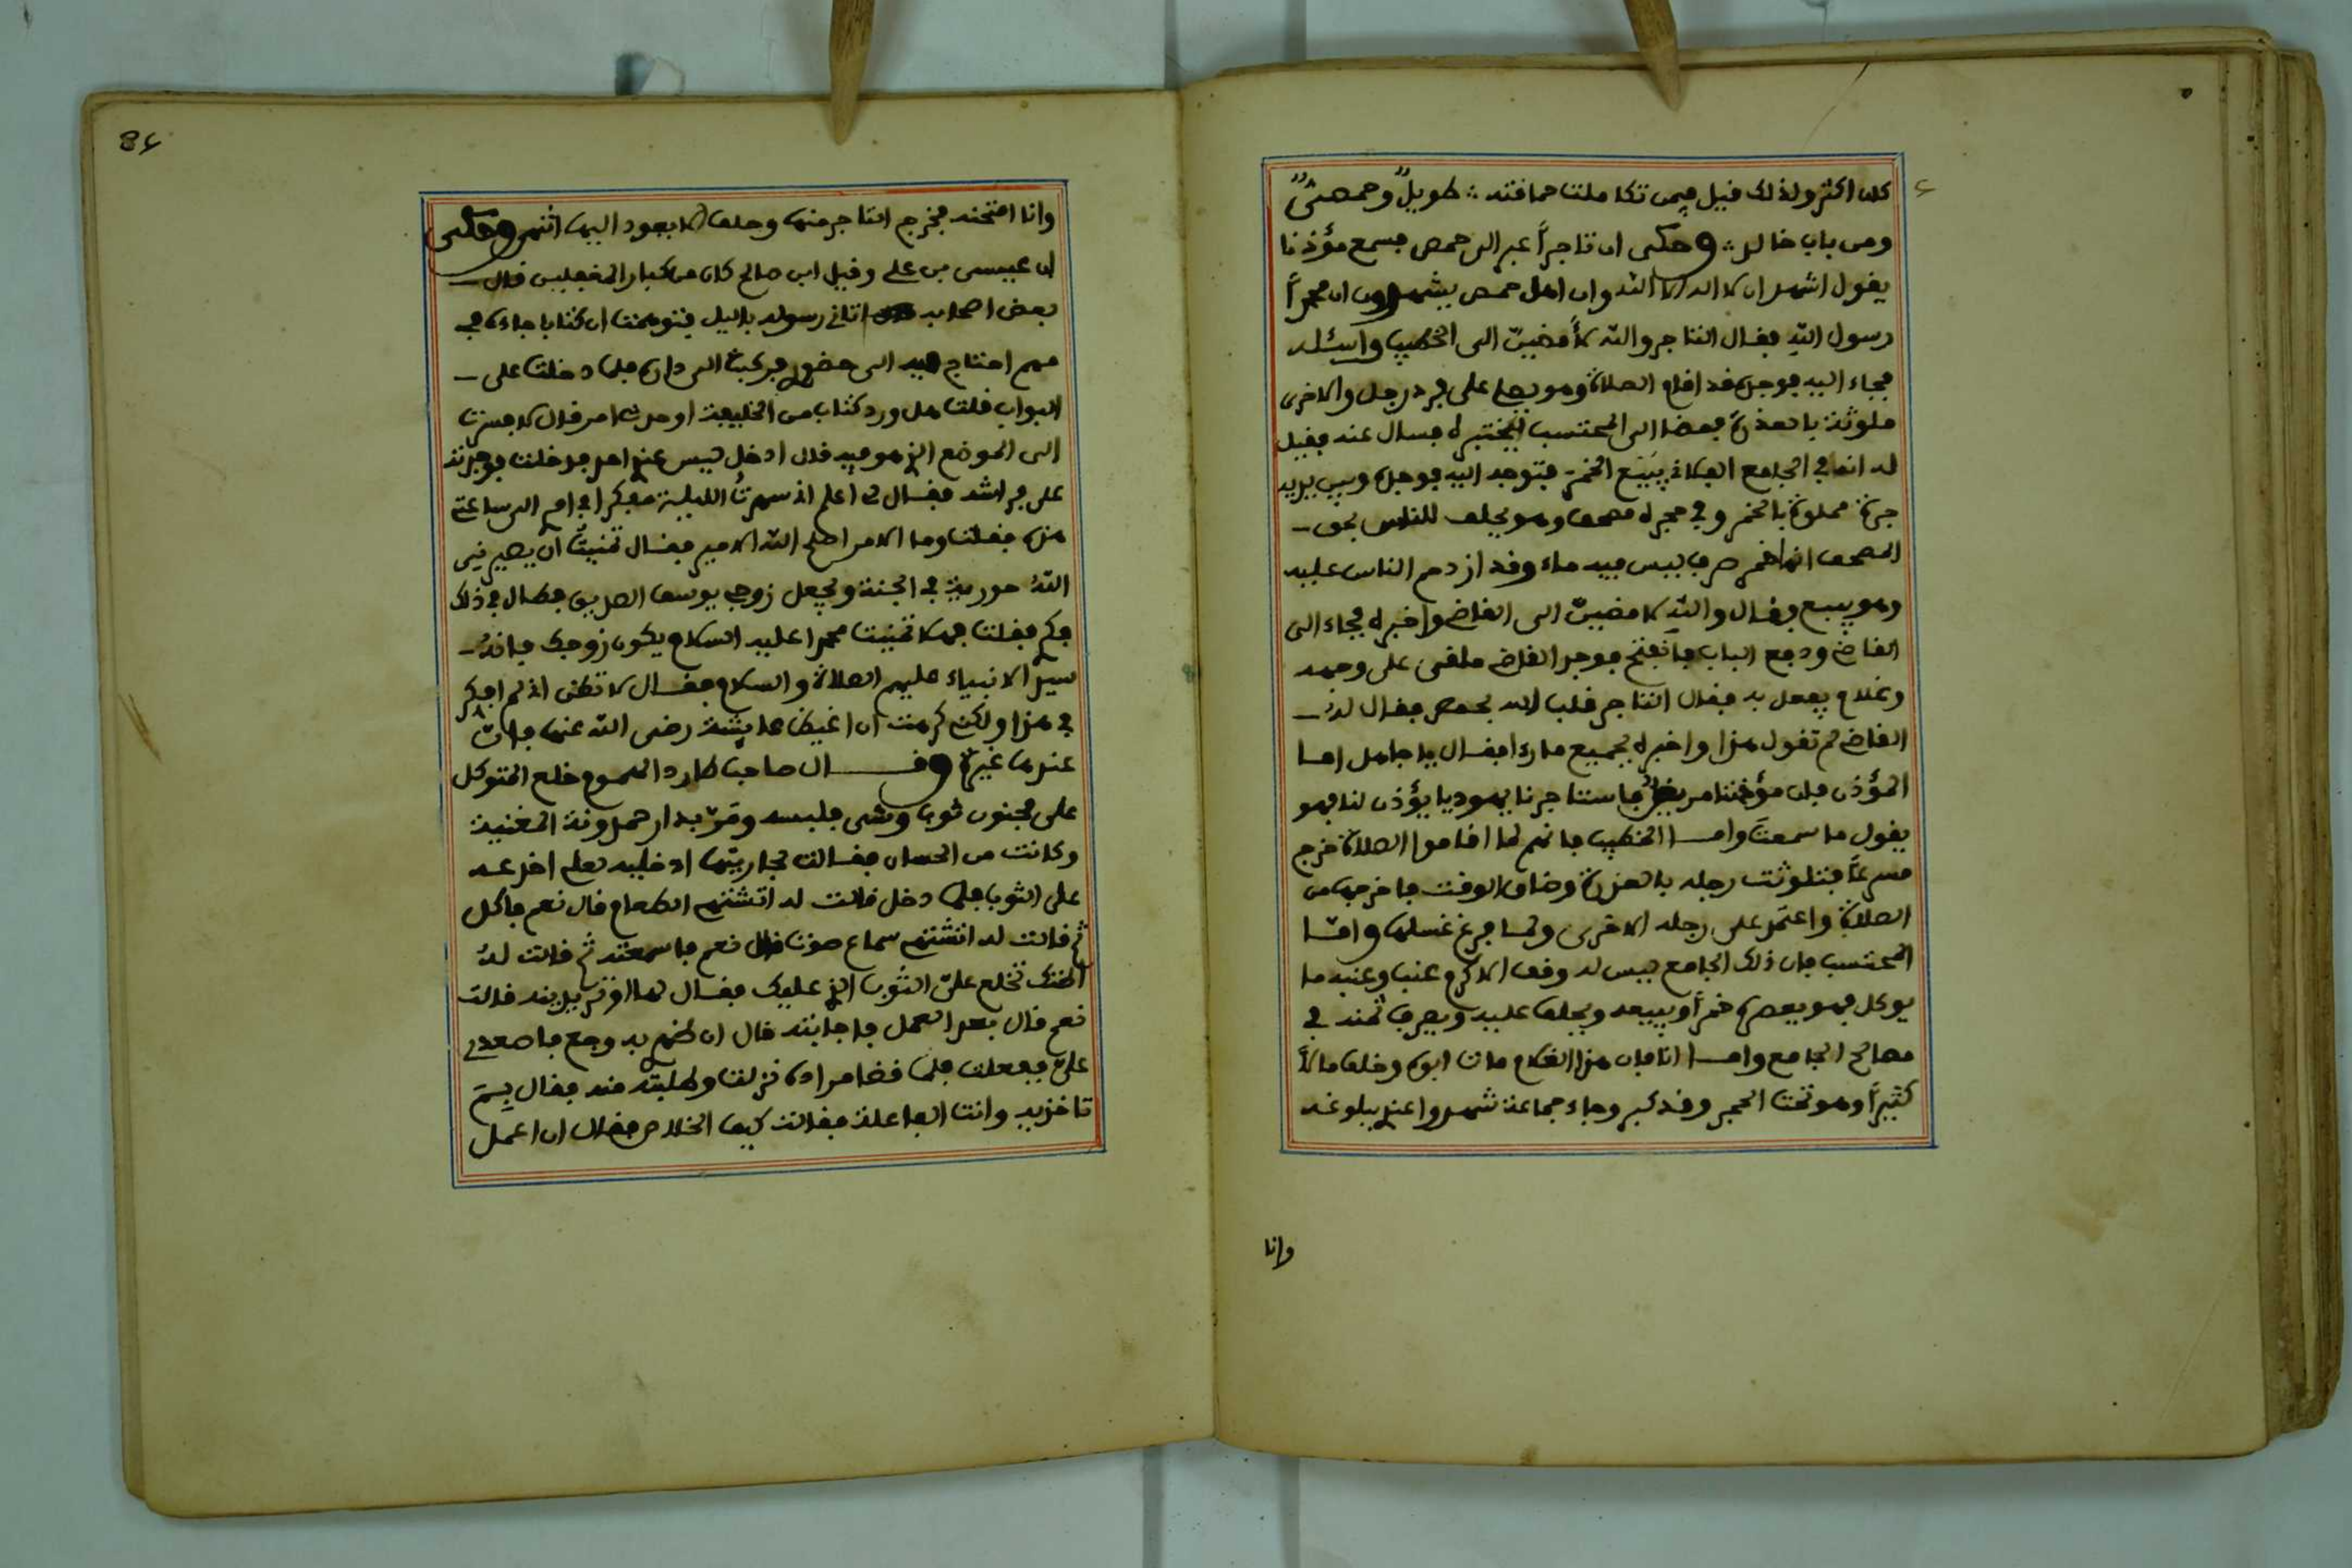 كان اكثر ولذلك قيل فيمن تكاملت حماقته : طويلٌ وحمصىٌّ
ومن باب خالد : وحكى ان تاجرًا عبر الى حمص فسمع مؤذنا
يقول اشهد ان لا اله الا الله وان اهل حمص يشهدون ان محمدًا
رسول الله فقال التاجر والله لأمضينّ الى الخطيب واسئله
فجاء اليه فوجده قد اقام الصلاة وهو يصلى على فرد رجل والاخرى
ملوثة بالعذرة فمضا الى المحتسب ليختبره فسال عنه فقيل
له انه في الجامع الفلاني يبيع الخمر فتوجه اليه فوجده وبين يديه
جرة مملوة بالخمر وفي حجره مصحف وهو يحلف للناس بحق
المصحف انها خمر صرف ليس فيه ماء وقد ازدحم الناس عليه
وهو يبيع فقال والله لامضينّ الى القاضى واخبره فجاء الى
القاضى ودفع الباب فانفتح فوجد القاضى ملقى على وجهه
وغلام يفعل به فقال التاجر قلب الله بحمص فقال له
القاضى لم تقول هذا واخبره بجميع ما رءا فقال يا جاهل امـا
المؤذن فان مؤذننا مريض فاستاجرنا يهوديا يؤذن لنا فهو
يقول ما سمعتَ وامـا الخطيب فانهم لما اقاموا الصلاة خرج
مسرعًا فتلوثت رجله بالعذرة وضاق الوقت فاخرجها من
الصلاة واعتمد على رجله الاخرى ولمـا فرغ غسلها وامّـا
المحتسب فان ذلك الجامع ليس له وقف الا كرم عنب وعنبه ما
يوكل فهو يعصره خمرًا ويبيعه ويحلف عليه ويصرف ثمنه في
مصالح الجامع وامـا انا فان هذا الغلام مات ابوه وخلف مالًا
كثيرًا وهو تحت الحجر وقد كبر وجاء جماعة شهدوا عندي ببلوغه
وانا
86
وانا امتحنه فخرج التاجر منها وحلف لا يعود اليها انتهى وحكى
ان عيسى بن على وقيل ابن صالح كان من كبار المغفلين قال
بعض اصحابه اتانى رسوله بالليل فتوهمت ان كتابا جاءه في
مهم احتاج فيه الى حضوري فركبت الى داره فلما دخلت على
البواب قلت هل ورد كتاب من الخليفة او حدث امر قال لا فسرت
الى الموضع الذي هو فيه قال ادخل ليس عنده احد فدخلت فوجدته
على فراشه فقـال لى اعلم انى سهرتُ الليلة مفكرا في امر الى ساعتى
هذه فقلت وما الامر اصلح الله الامير فقـال تمنيتُ ان يصيرنى
اللهُ حورية في الجنة ويجعل زوجى يوسف الصديق فطال في ذلك
فكري فقلت فهلا تمنيت محمدا عليه السلام يكون زوجك فانهُ
سيد الانبياء عليهم الصلاة والسلام فقـال لا تظن انى لم افكر
في هذا ولكن كرهت ان اغيظ عايشة رضى الله عنها فانّ
عندها غيرة وقـــال صاحب طارد الهموم خلع المتوكل
على مجنون ثوبا وشى فلبسه ومَرّ بدار حمدونة المغنية
وكانت من الحسان فقـالت لجاريتها ادخليه لعلى اخدعـه
على الثوب فلما دخل قالت له اتشتهى الطعام قال نعم فاكل
ثم قالت له اتشتهى سماع صوت قال نعم فاسمعته ثم قالت لهُ
اظنك تخلع علىّ الثوب الذي عليك فقـال لها او تريدينه قالت
نعم قال بعد العمل فاجابته قال ان لم به وجع فاصعدى
علىّ ففعلت فلما قضا مراده نزلت وطلبته منه فقال بِمَ
تاخذيه وانت الفاعلة فقالت كيف الخلاص فقال ان اعمل